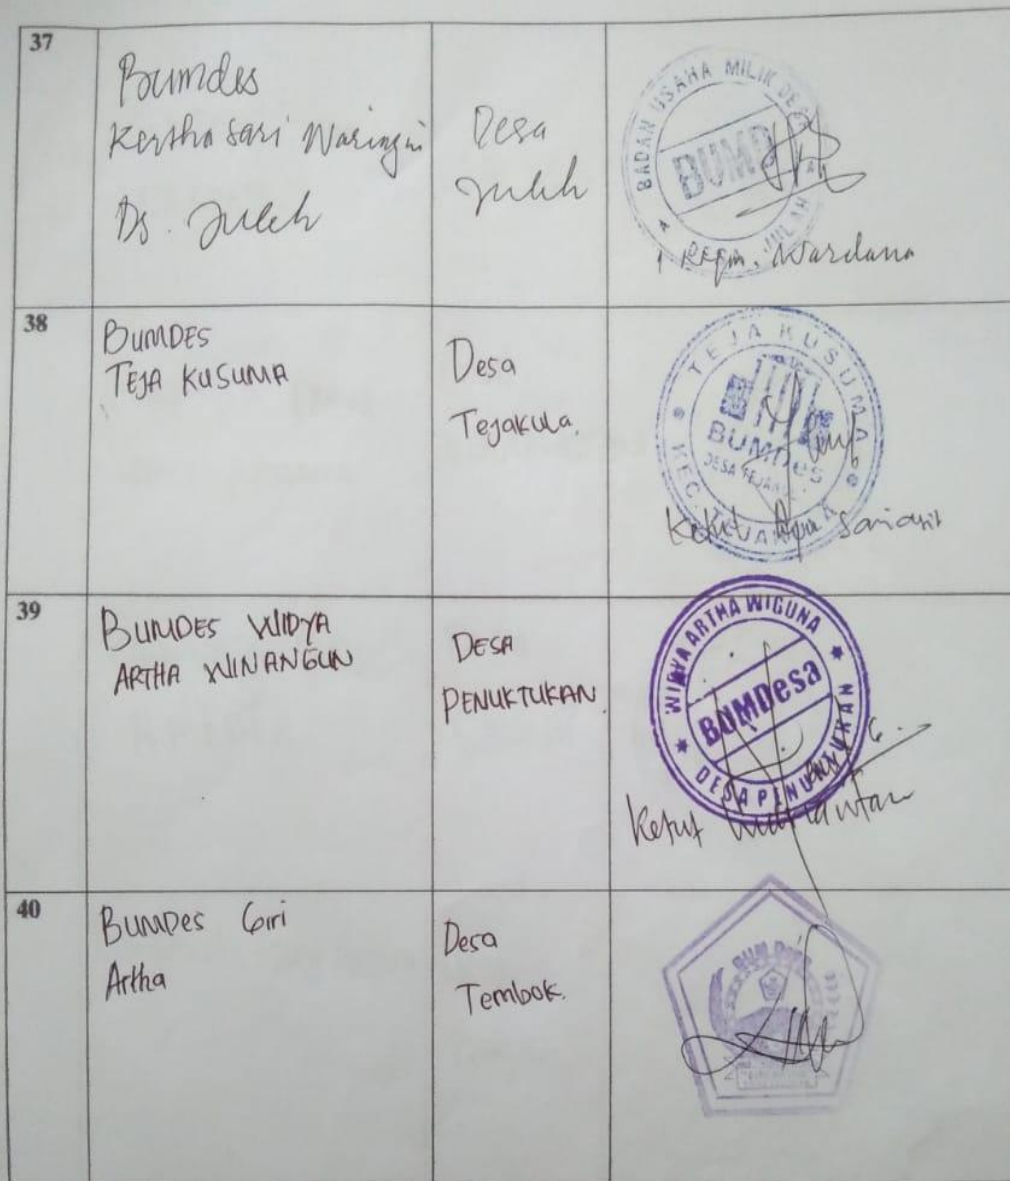 37
Bumdes
Kertha Sari Waringin
Ds. Julah
Desa
Julah
BADAN USAHA MILIK DESA
BUMD
JULAH
Wardana
38
BUMDES
TEJA KUSUMA
Desa
Tejakula.
TEJA KUSUMA
BUMDes
DESA
KEC.
Ketut
39
BUMDES WIDYA
ARTHA WINANGUN
DESA
PENUKTUKAN.
WIDYA ARTHA WIGUNA
BUMDesa
DESA PENUKTUKAN
Ketut
40
BUMDes Giri
Artha
Desa
Tembok.
BUM Desa